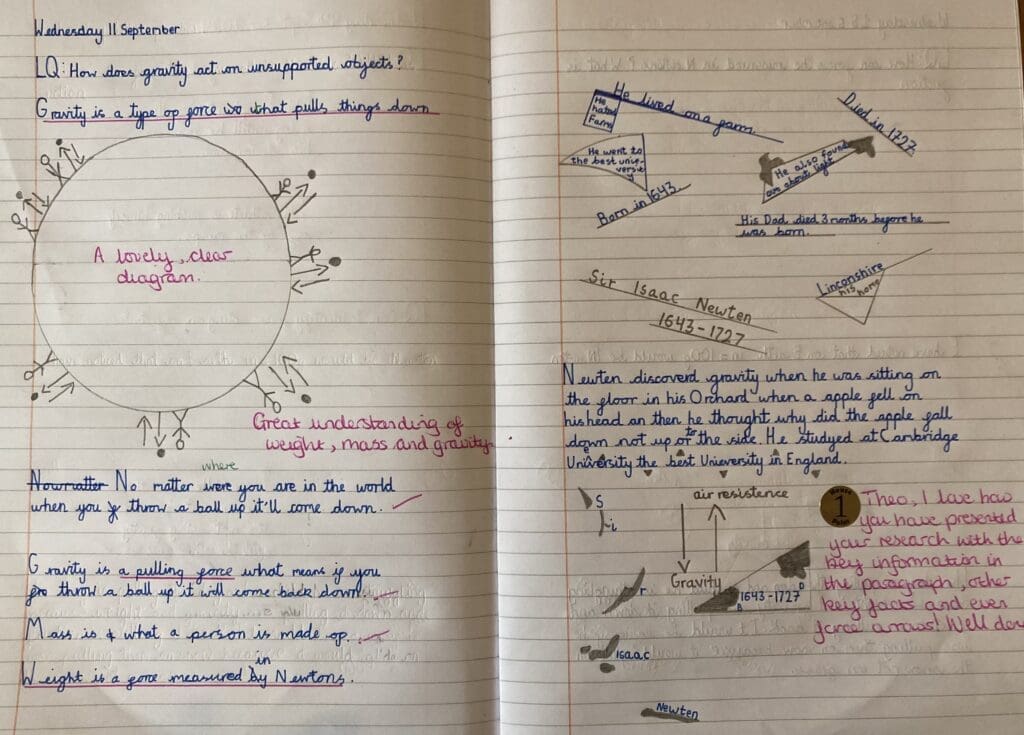 Wednesday 11 September
LQ: How does gravity act on unsupported objects?
Gravity is a type op force is what pulls things down
A lovely, clear
diagram.
Great understanding of
weight, mass and gravity.
where
Nowmatter No matter were you are in the world
when you throw a ball up it'll come down.
Gravity is a pulling force what means if you
throw a ball up it will come back down.
Mass is what a person is made op.
in
Weight is a force measured by Newtons.
He lived on a farm.
He
hated
Farms
Died in 1727
He went to
the best unive-
versity
He also found
out about light
Born in 1643
His Dad died 3 months before he
was born.
Sir Isaac Newten
1643-1727
Linconshire
his home
Newten discoverd gravity when he was sitting on
the floor in his Orchard when a apple fell on
his head an then he thought why did the apple fall
down not up or to the side. He studyed at Cambridge
University the best Unieversity in England.
S
i
r
Isaac
Newten
air resistence
Gravity
1643-1727
B
D
House
1
Point
Theo, I love how
you have presented
your research with the
key information in
the paragraph, other
key facts and even
force arrows! Well done